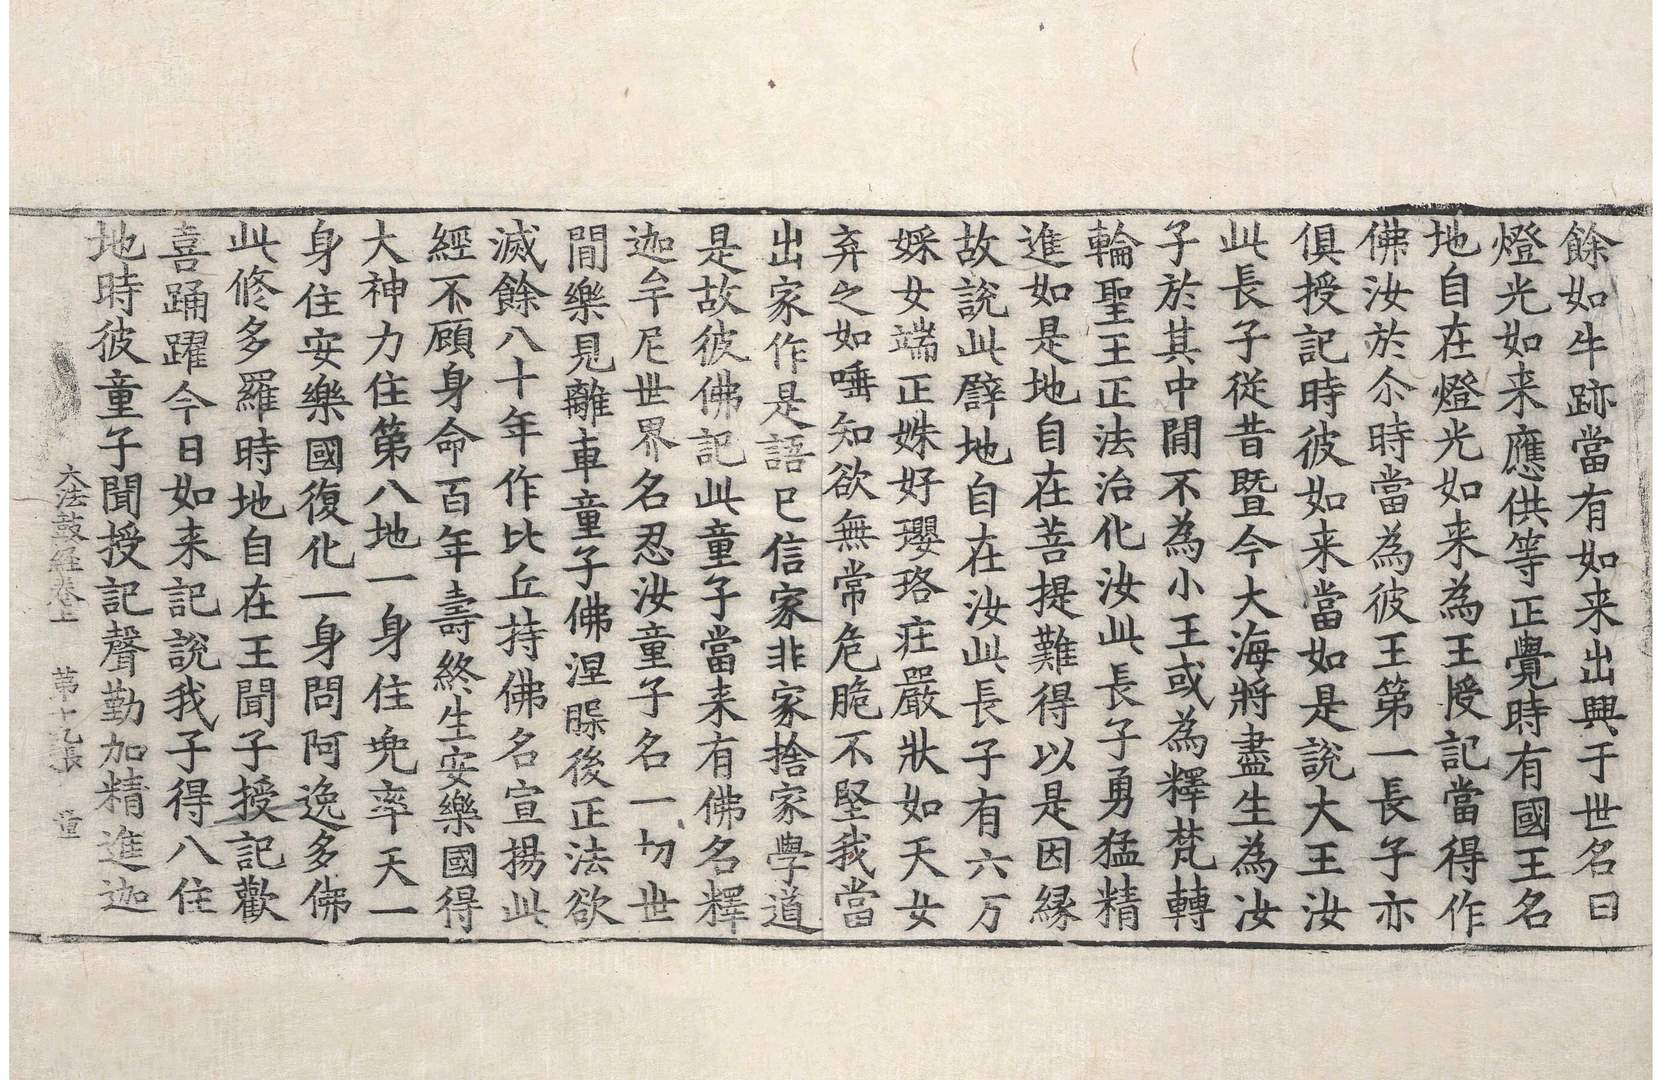 餘如牛跡當有如来出興于世名曰
燈光如来應供等正覺時有國王名
地自在燈光如来為王授記當得作
佛汝於尒時當為彼王第一長子亦
俱授記時彼如来當如是說大王汝
此長子従昔暨今大海將盡生為汝
子於其中間不為小王或為釋梵轉
輪聖王正法治化汝此長子勇猛精
進如是地自在菩提難得以是因縁
故說此譬地自在汝此長子有六万
婇女端正姝好瓔珞疘嚴狀如天女
弃之如唾知欲無常危脆不堅我當
出家作是語已信家非家捨家學道
是故彼佛記此童子當来有佛名釋
迦牟尼世界名忍汝童子名一切世
間樂見離車童子佛涅槃後正法欲
滅餘八十年作比丘持佛名宣揚此
經不顧身命百年壽終生安樂國得
大神力住第八地一身住兠率天一
身住安樂國復化一身問阿逸多佛
此修多羅時地自在王聞子授記歡
喜踊躍今日如来記說我子得八住
地時彼童子聞授記聲勤加精進迦
大法鼓経卷上 第十九張 量